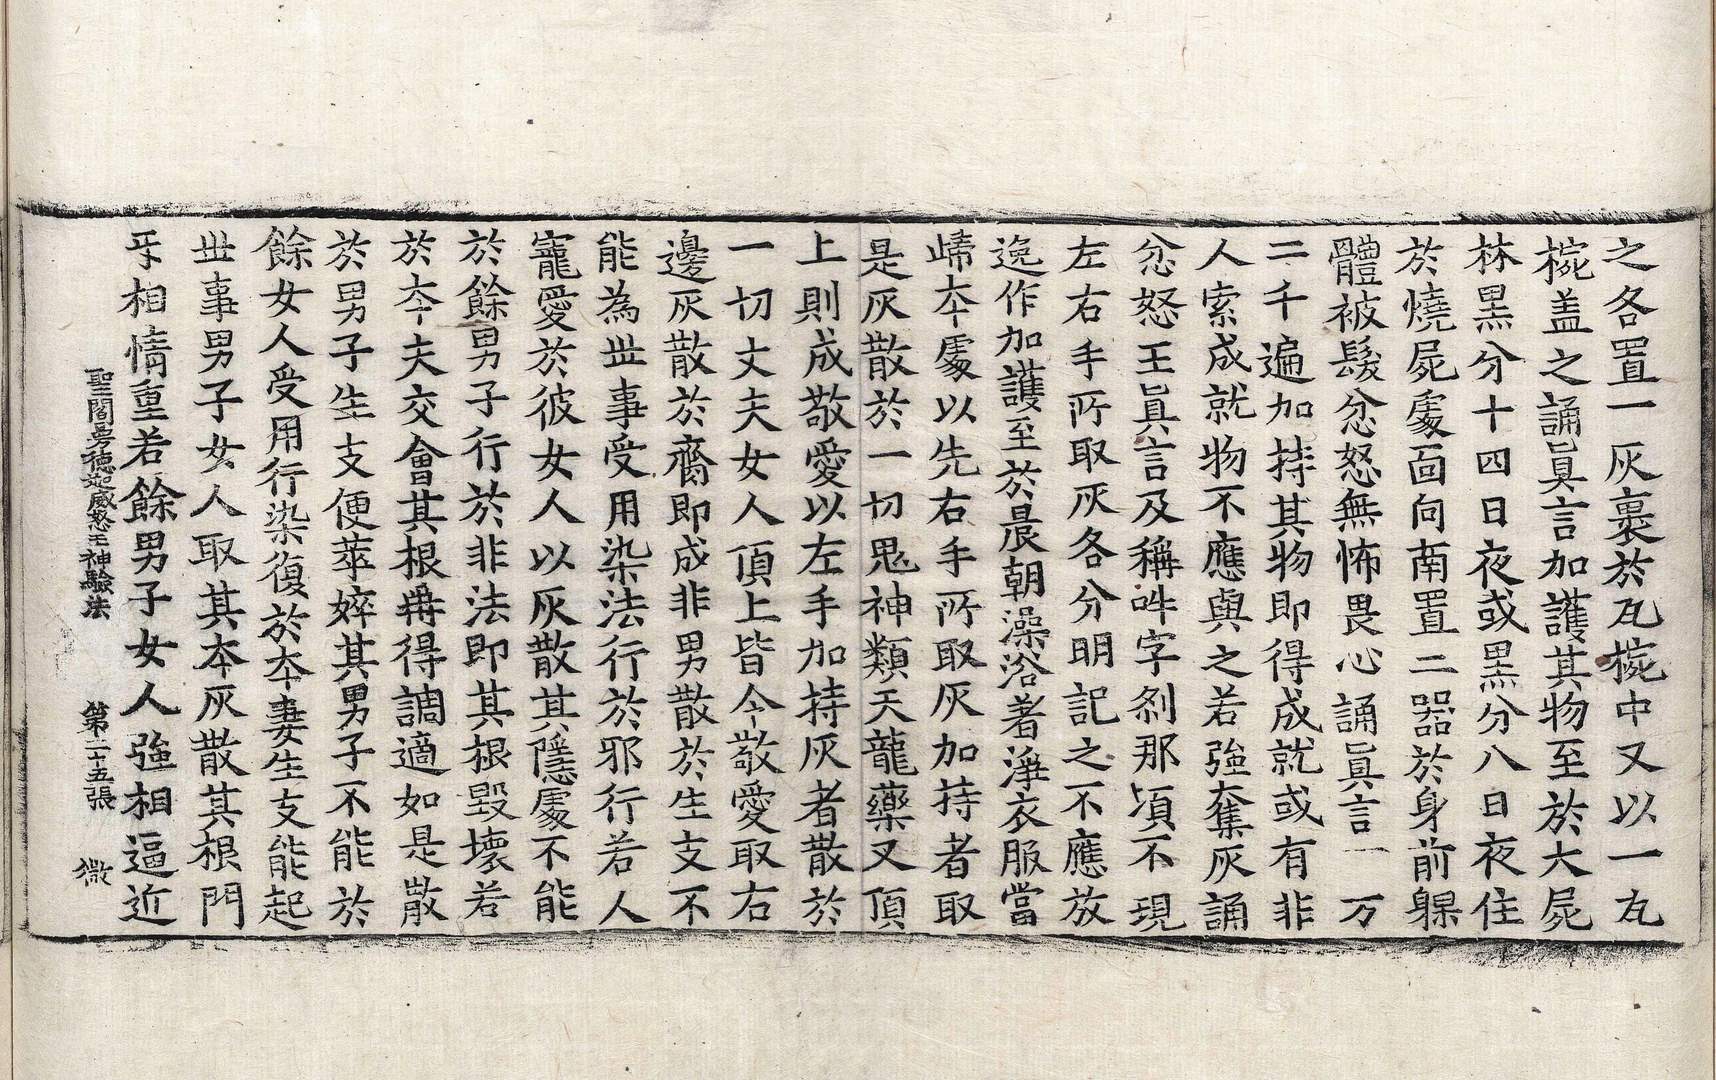 之各置一灰裹於瓦椀中又以一瓦
椀盖之誦眞言加護其物至於大屍
林黑分十四日夜或黑分八日夜住
於燒屍處面向南置二器於身前躶
體被髮忿怒無怖畏心誦眞言一万
二千遍加持其物即得成就或有非
人索成就物不應與之若強奪灰誦
忿怒王眞言及稱吽字剎那頃不現
左右手所取灰各分明記之不應放
逸作加護至於晨朝澡浴著淨衣服當
歸本處以先右手所取灰加持者取
是灰散於一切鬼神類天龍藥叉頂
上則成敬愛以左手加持灰者散於
一切丈夫女人頂上皆令敬愛取右
邊灰散於齎即成非男散於生支不
能為世事受用染法行於邪行若人
寵愛於彼女人以灰散其隱處不能
於餘男子行於非法即其根毀壞若
於本夫交會其根再得調適如是散
於男子生支便萃悴其男子不能於
餘女人受用行染復於本妻生支能起
世事男子女人取其本灰散其根門
互相情重若餘男子女人強相逼近
聖閻曼德迦威怒王神驗法 第二十五張 微